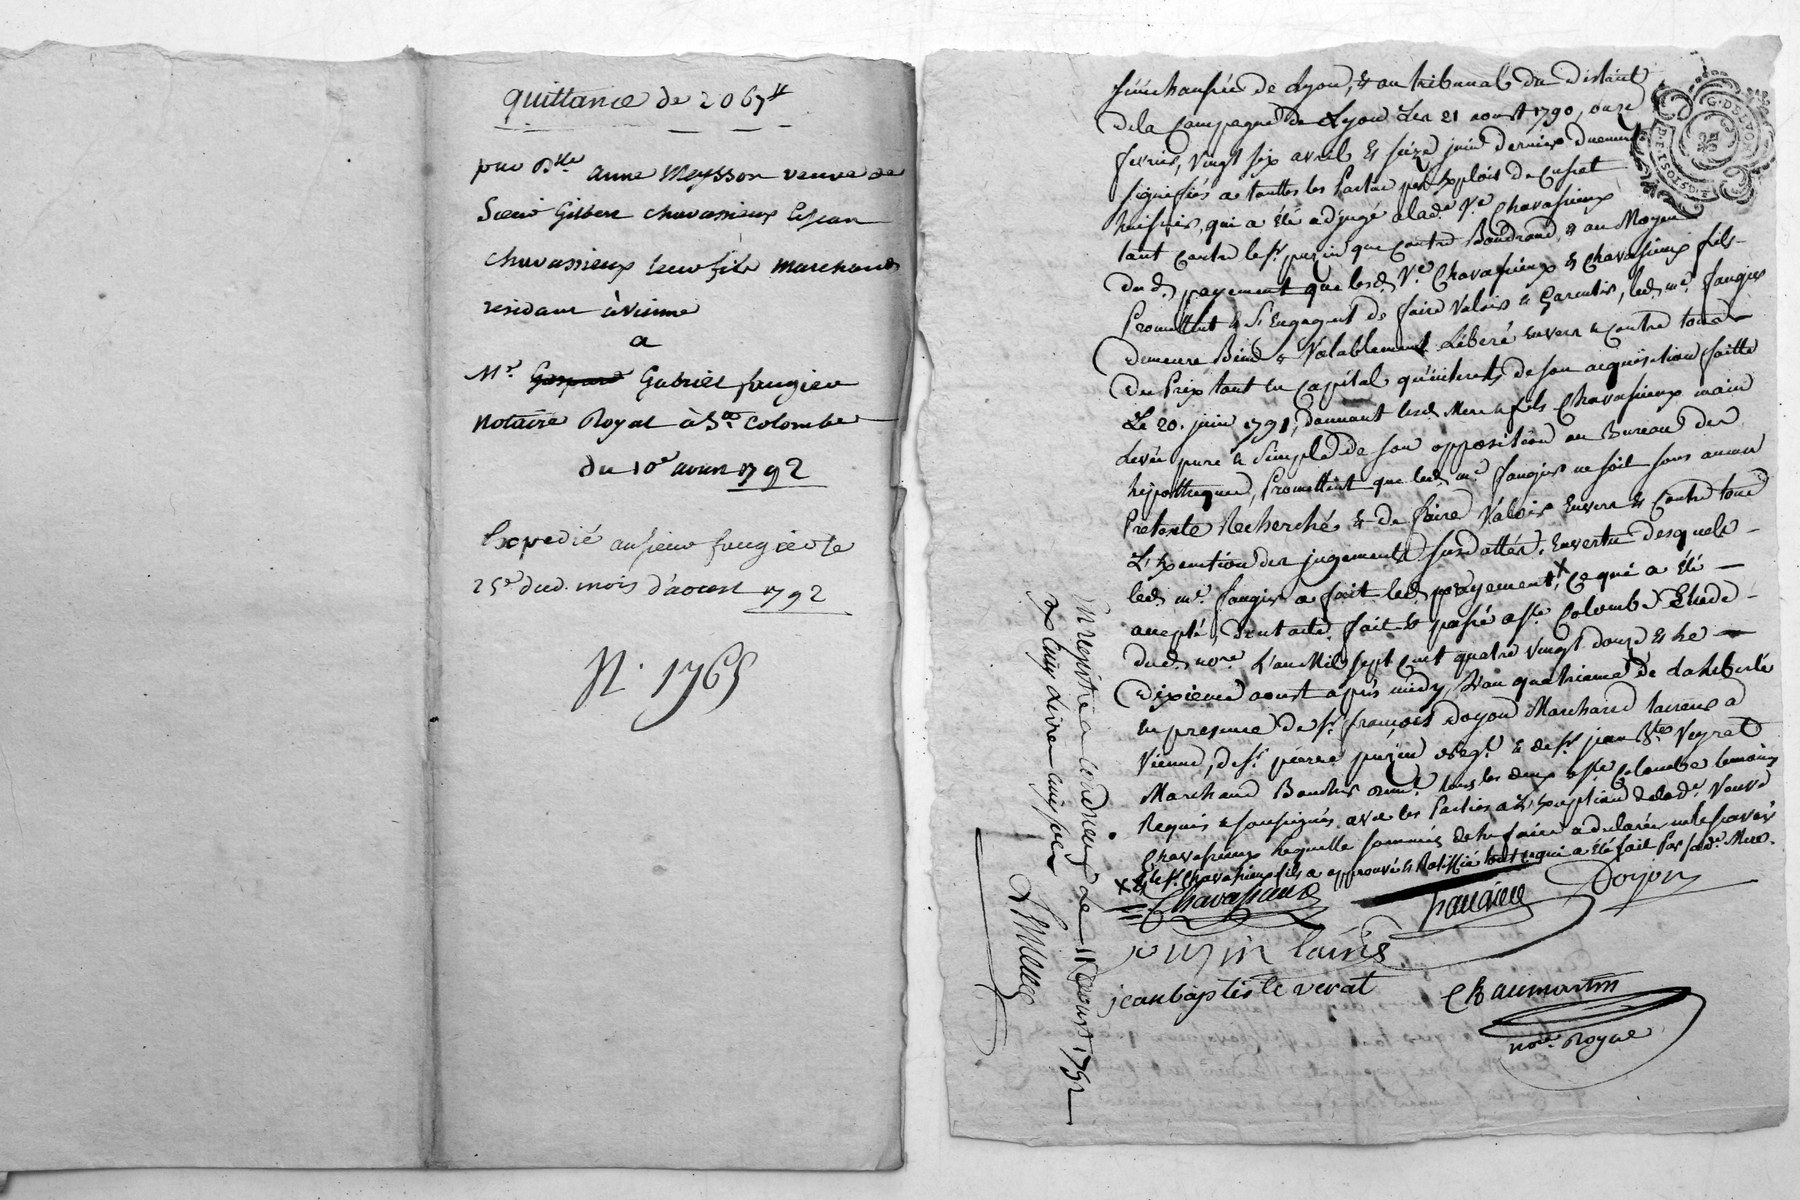 quittance de 2067 ₶
par Dlle anne Meysson veuve de
Sieur Gilbert chavassieux et jean
chavassieux leur fils marchands
residant à vienne
a
Mr. Gaspard Gabriel faugier
notaire Royal à Ste Colombe
du 10e aoust 1792
Expedié au sieur faugier le
25e dud. mois d'aoust 1792
N. 1765
Sénéchaussée de Lyon, & au tribunal du district
de la Campagne de Lyon Les 21 aoust 1790, onze
fevrier, vingt six avril & seize juin dernier duement
signifiés a touttes les Parties par Exploit de Cusset
huissier, qui a été adjugé a lade. Ve. Chavassieux
tant contre le sr. puzin que contre Baudrand, & au Moyen
du d. payement que lesd. Ve Chavassieux & Chavassieux fils
Promettent & s'Engagent de faire Valoir & Garentir, led. me. faugier
demeure Bien & Valablement Libéré envers & contre tous
du Prix tant en Capital qu'intérêts de son acquisition faitte
Le 20. juin 1791, donnant lesd. Mere & fils Chavassieux main
Levée pure & Simple de son opposition au Bureau des
hypotheques, Promettent que led. me. faugier ne soit sous aucun
Pretexte Recherché & de faire Valoir Envers & Contre tous
L'Exécution des jugements susdattés, En vertu desquels
led. me. faugier a fait led. payement, X Ce qui a été
accepté, dont acte. fait & passé a Ste. Colombe Etude
dud. nore. L'an Mil sept Cent quatre vingt douze & le
dixieme aoust après midy, L'an quatrieme de la liberté
en presence de sr. françois Doyon Marchand taneur a
Vienne, de sr. pierre puzin negt. & de sr. jean Bte Veyrat
Marchand Boucher demt. tous les deux a Ste Colombe temoins
Requis & soussignés avec les Parties a L'Exception de lade. Veuve
Chavassieux laquelle sommée de le faire a declaré ne le savoir
X & le sr. Chavassieux fils a approuvé & Ratiffié tout ce qui a été fait Par sade. Mere.
Chavassieux
faugier
Doyon
puzin lainé
jean baptiste verat
Chaumartin
nore. Royal
Enregistré a condrieu Le 11 aoust 1792